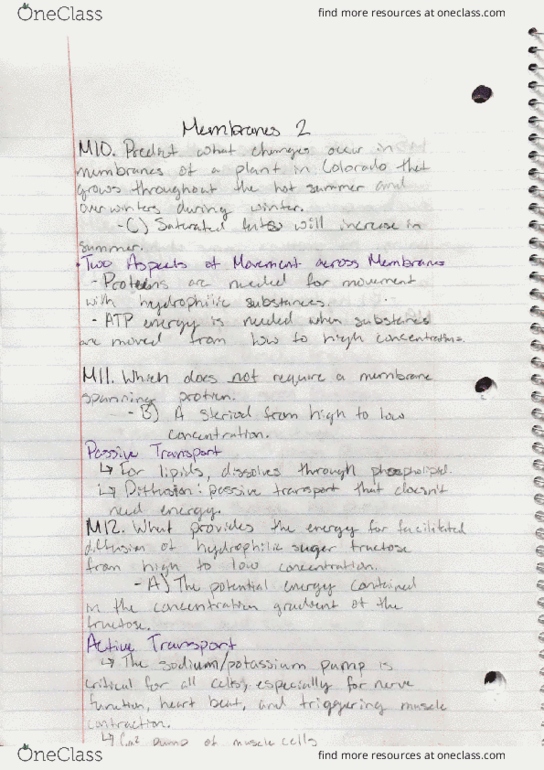 OneClass
find more resources at oneclass.com
Membranes 2
M10. Predict what changes occur in
membranes of a plant in Colorado that
grows throughout the hot summer and
overwinters during winter.
- C) Saturated will increase in
summer.
• Two Aspects of Movement across Membranes
- Proteins are needed for movement
with hydrophilic substances.
- ATP energy is needed when substances
are moved from low to high concentrations.
M11. Which does not require a membrane
spanning protien.
- B) A steriod from high to low
concentration.
Passive Transport
↳ For lipids, dissolves through phospholipid.
↳ Diffusion: passive transport that doesn't
need energy.
M12. What provides the energy for facilitated
diffusion of hydrophilic suger fructose
from high to low concentration.
- A) The potential energy contained
in the concentration gradient of the
fructose.
Active Transport
↳ The sodium/potassium pump is
critical for all cells, especially for nerve
function, heart beat, and triggering muscle
contraction.
↳ pump of muscle cells
OneClass
find more resources at oneclass.com